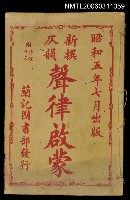 NMTL20080311359
昭和五年七月出版
新撰
仄韻
聲律啟蒙
簡記圖書部發行